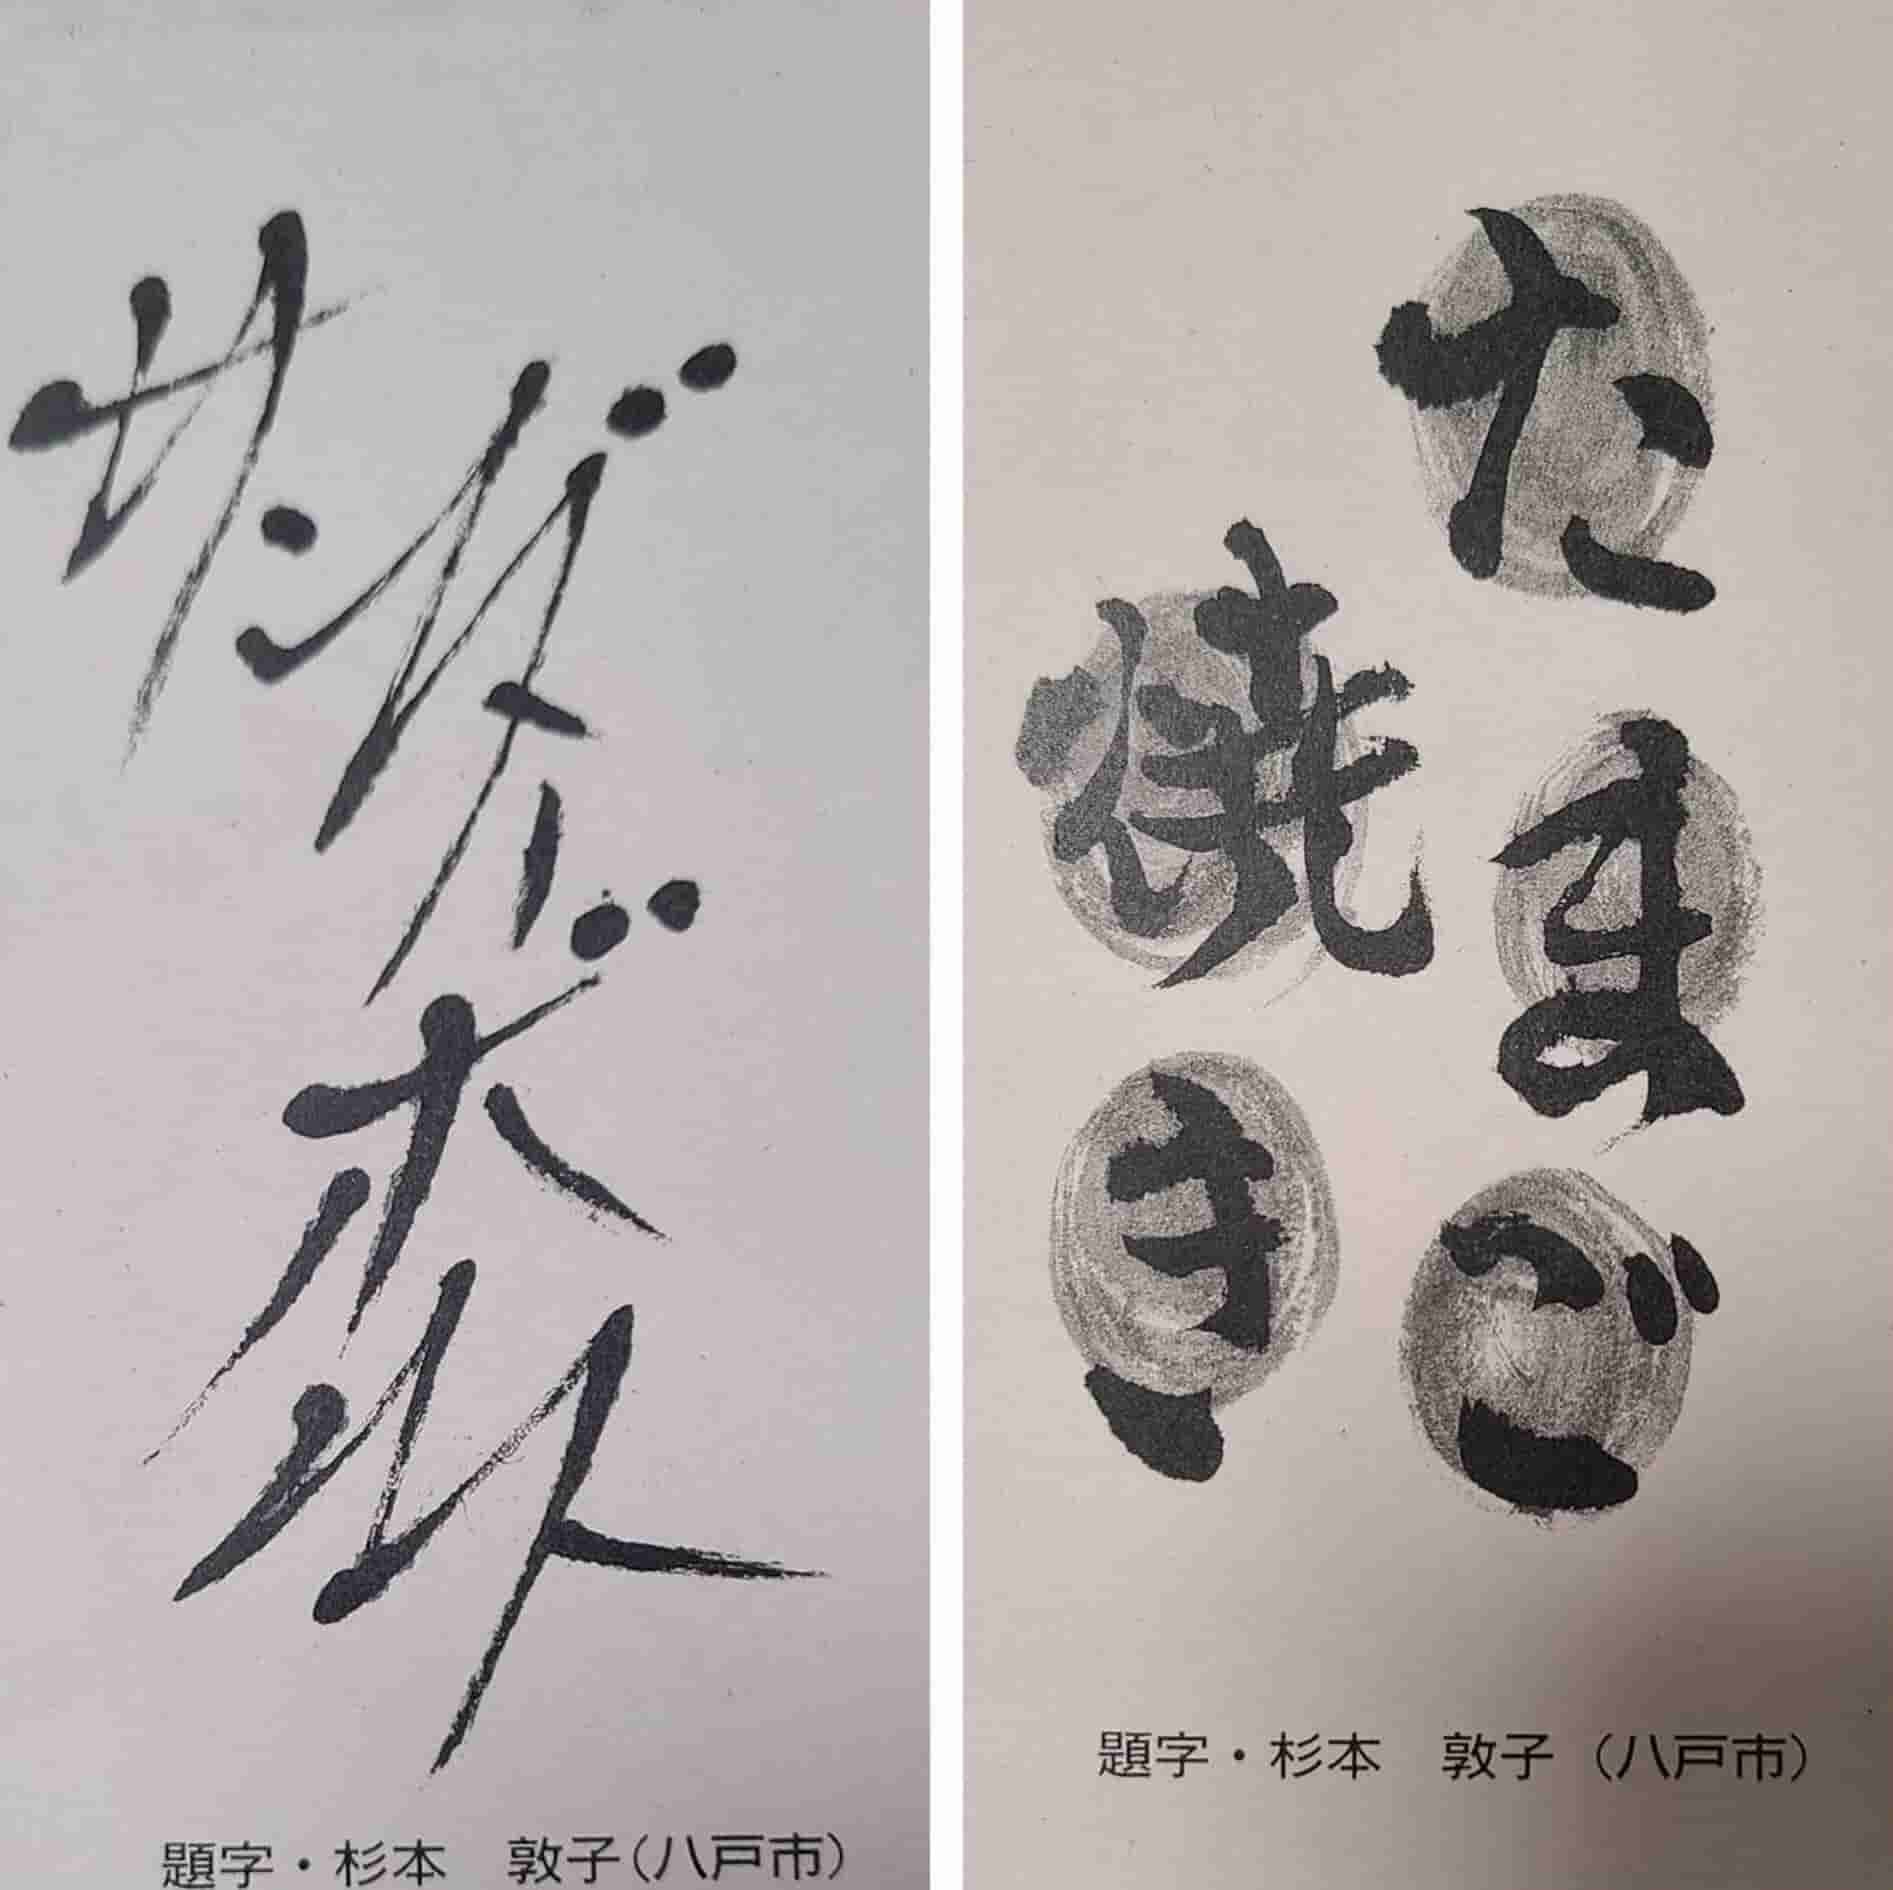 サンダーボルト
題字・杉本 敦子(八戸市)
たまご
焼き
題字・杉本 敦子(八戸市)